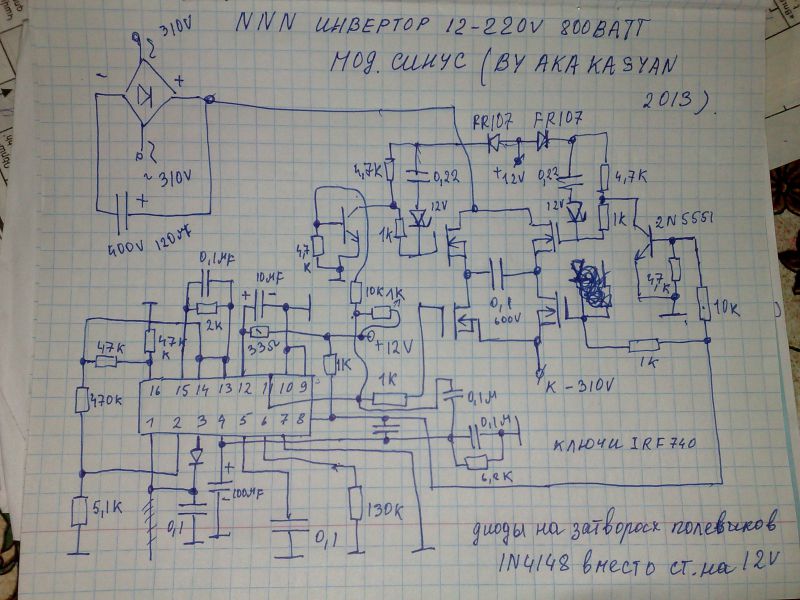 NNN ИНВЕРТОР 12-220V 800ВАТТ
МОД. СИНУС (BY AKA KASYAN
2013).
310V
-
+
~310V
+
400V 120мF
FR107
FR107
4,7K
0,22
+12V
0,22
4,7K
12V
12V
1K
1K
2N5551
4,7
K
4,7K
10K
0,1мF
10мF
+
-
10K
1K
2K
33Ω
+12V
0,1
600V
47K
47K
K
1K
1K
1K
K -310V
470K
16 15 14 13 12 11 10 9
1 2 3 4 5 6 7 8
0,1м
0,1м
6,2K
КЛЮЧИ IRF740
+
-
100мF
5,1K
0,1
0,1
130K
диоды на затворах полевиков
1N4148 вместо ст. на 12V